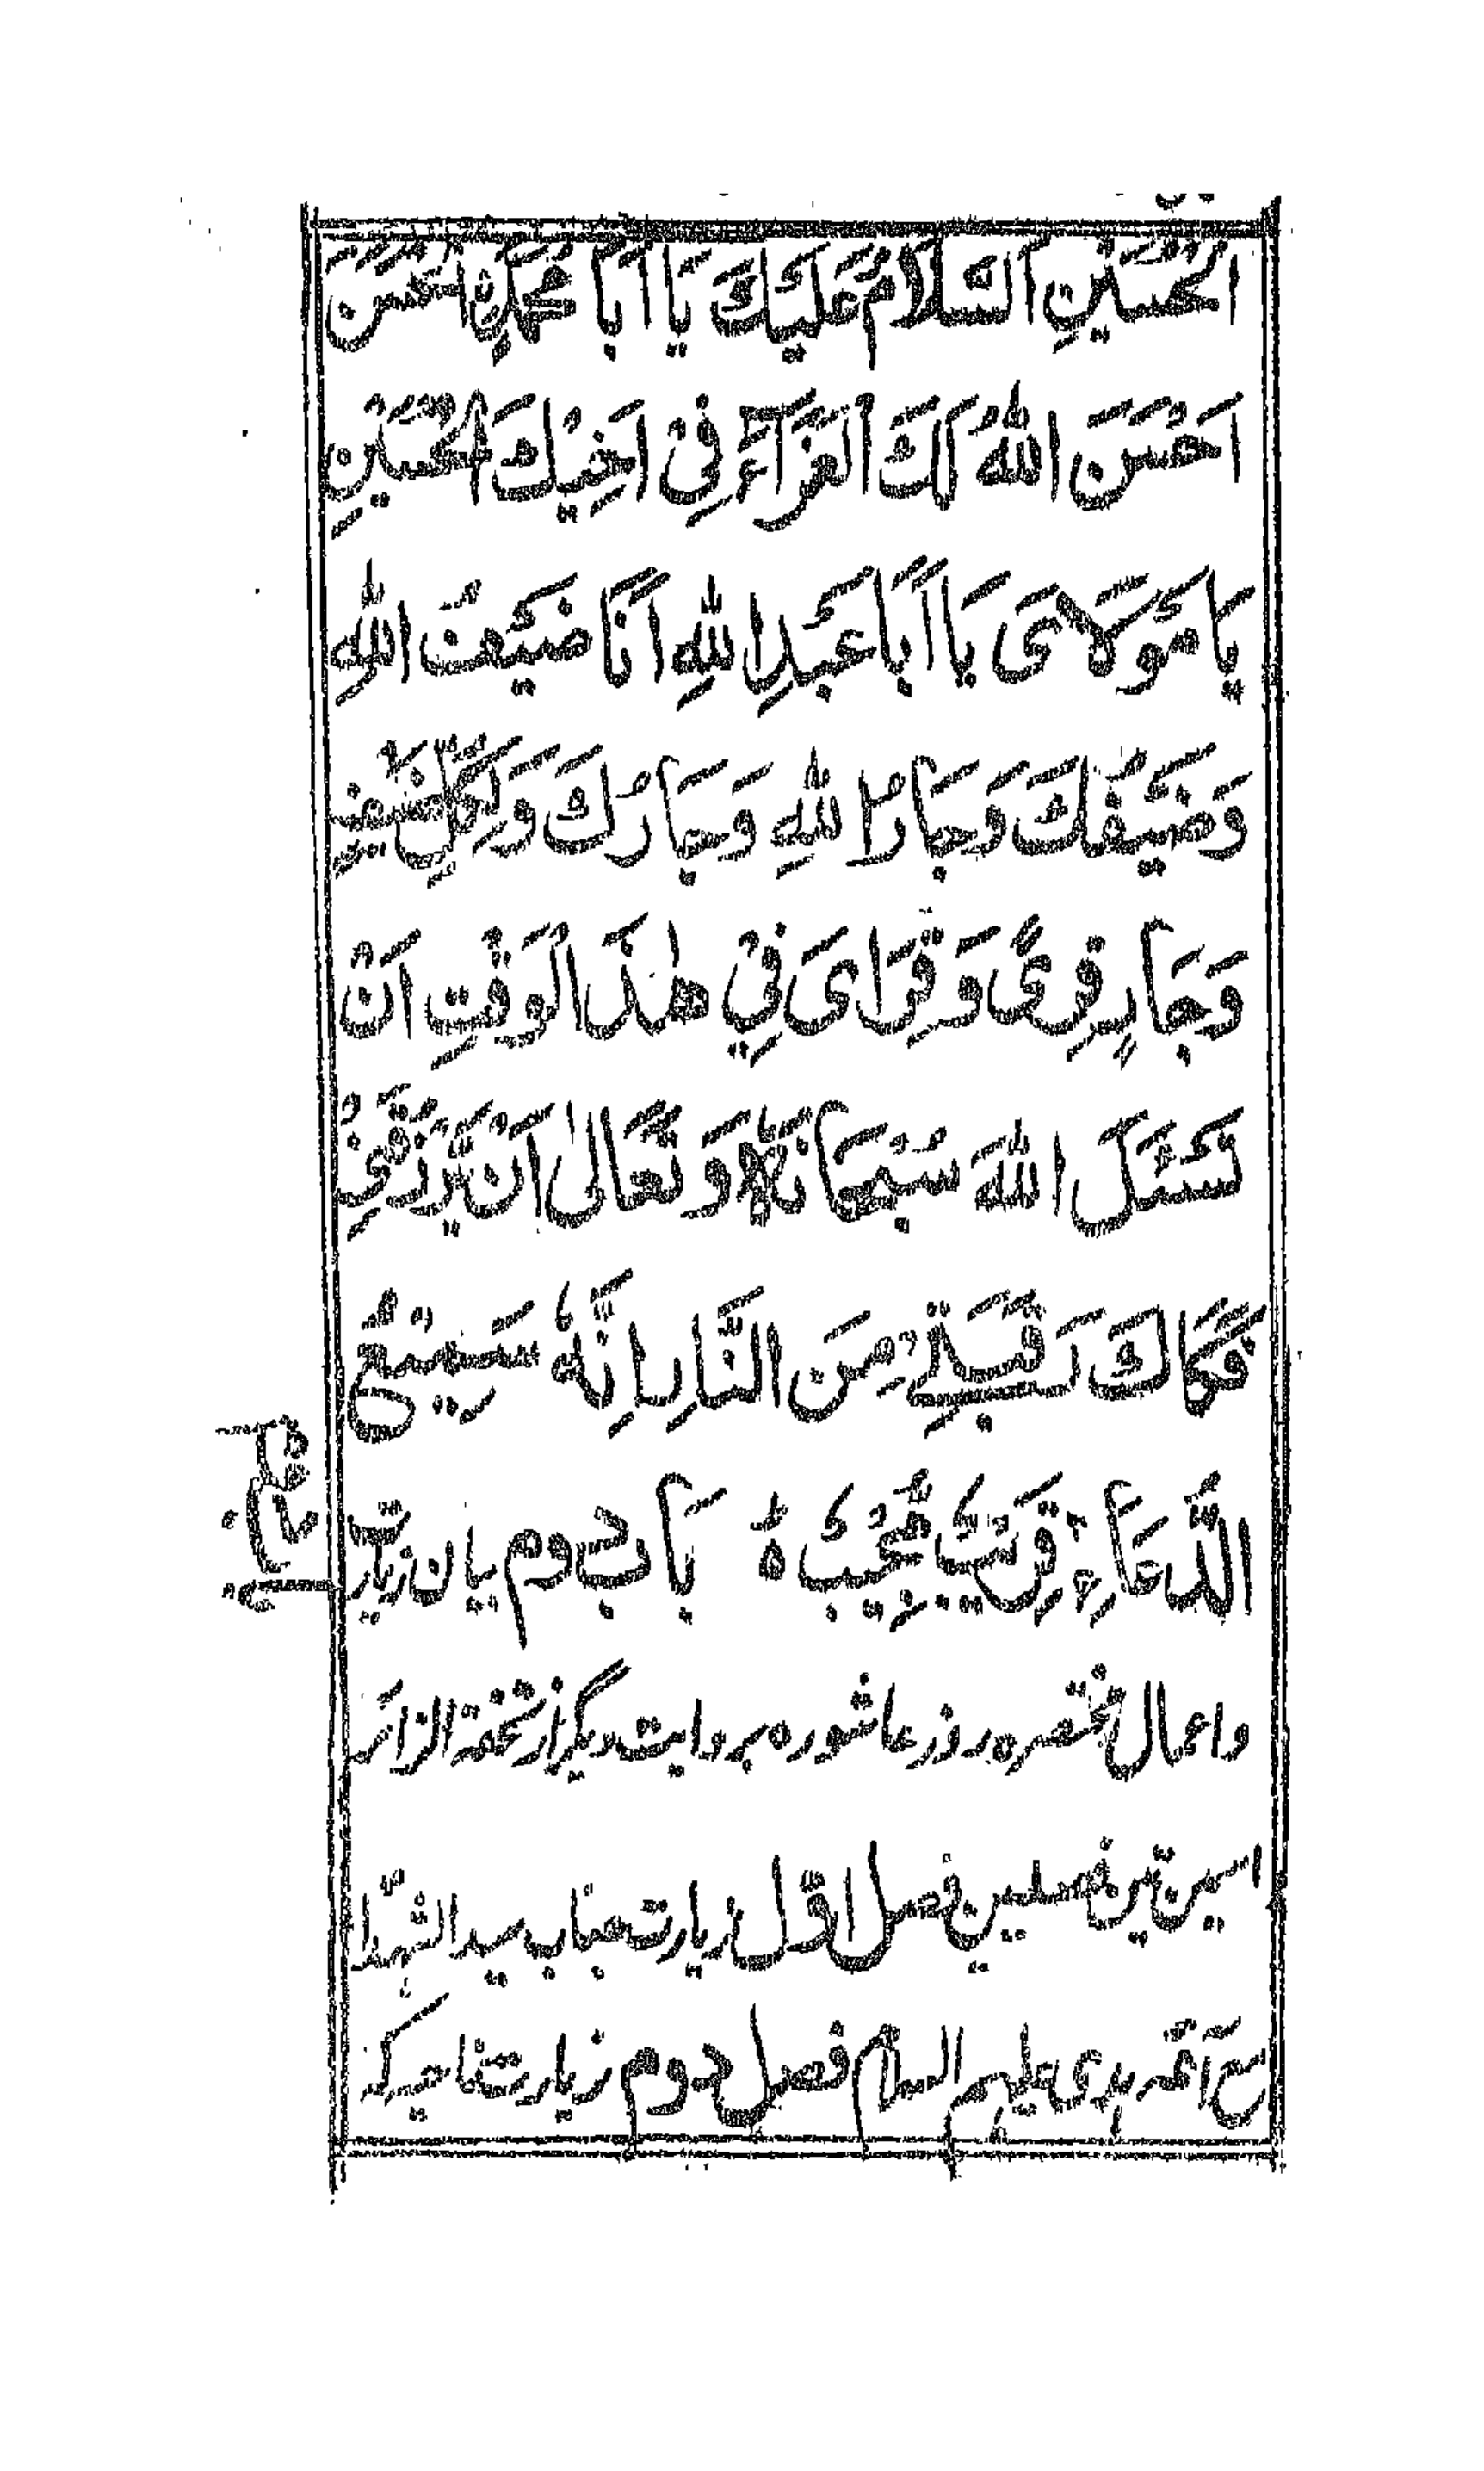 الْحُسَيْنِ اَلسَّلَامُ عَلَيْكَ يَا اَبَا مُحَمَّدِنِ الْحَسَنَ
اَحْسَنَ اللّٰهُ لَكَ الْعَزَآءَ فِیْ اَخِيْكَ الْحُسَيْنِ
يَا مَوْلَایَ يَا اَبَا عَبْدِ اللّٰهِ اَنَا ضَيْفُ اللّٰهِ
وَضَيْفُكَ وَجَارُ اللّٰهِ وَجَارُكَ وَلِكُلِّ ضَيْفٍ
وَجَارٍ قِرًی وَقِرَایَ فِيْ هٰذَا الْوَقْتِ اَنْ
تَسْئَلَ اللّٰهَ سُبْحَانَهٗ وَتَعَالٰی اَنْ يَّرْزُقَنِیْ
فَكَاكَ رَقَبَتِیْ مِنَ النَّارِ اِنَّهٗ سَمِيْعُ
الدُّعَآءِ قَرِيْبٌ مُّجِيْبٌ ہ بَاب دوم بیان زیارت
واعمال مختصرہ روز عاشورہ بروایت دیگر از تحفۃ الزائر
اسمین تین فصلین فصل اوّل زیارت جناب سید الشہدا
مع ائمہ ہدی علیہم السلام فصل دوم زیارت ناحیہ کہ